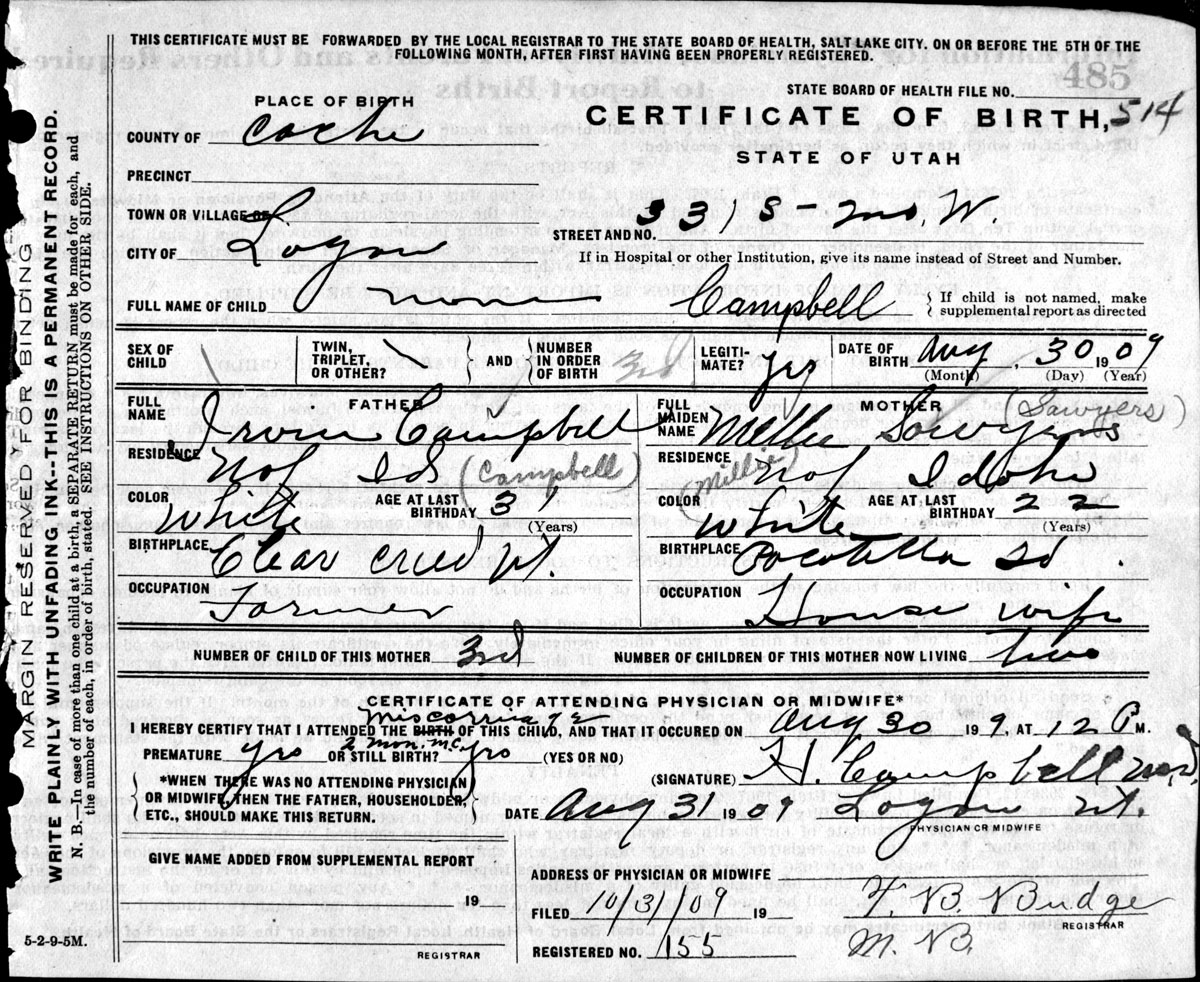 THIS CERTIFICATE MUST BE FORWARDED BY THE LOCAL REGISTRAR TO THE STATE BOARD OF HEALTH, SALT LAKE CITY. ON OR BEFORE THE 5TH OF THE
FOLLOWING MONTH, AFTER FIRST HAVING BEEN PROPERLY REGISTERED.
485
STATE BOARD OF HEALTH FILE NO.
PLACE OF BIRTH
CERTIFICATE OF BIRTH, 514
COUNTY OF Cache
STATE OF UTAH
PRECINCT
TOWN OR VILLAGE OF
STREET AND NO. 331 S- 2nd W
CITY OF Logan
If in Hospital or other Institution, give its name instead of Street and Number.
FULL NAME OF CHILD none Campbell { If child is not named, make
supplemental report as directed
SEX OF CHILD
TWIN, TRIPLET, OR OTHER?
AND
NUMBER IN ORDER OF BIRTH 3rd
LEGITIMATE? yes
DATE OF BIRTH Aug, 30 1909
(Month) (Day) (Year)
FATHER
FULL NAME Campbell
RESIDENCE Ida (Campbell)
COLOR White AGE AT LAST BIRTHDAY 31
(Years)
BIRTHPLACE Clear Ut.
OCCUPATION Farmer
MOTHER (Sawyers)
FULL MAIDEN NAME Mellie Sowyers
RESIDENCE (Millie) Idaho
COLOR White AGE AT LAST BIRTHDAY 22
(Years)
BIRTHPLACE Pocatella Id.
OCCUPATION House wife
NUMBER OF CHILD OF THIS MOTHER 3rd NUMBER OF CHILDREN OF THIS MOTHER NOW LIVING two
CERTIFICATE OF ATTENDING PHYSICIAN OR MIDWIFE*
miscarriage
I HEREBY CERTIFY THAT I ATTENDED THE BIRTH OF THIS CHILD, AND THAT IT OCCURED ON Aug 30 199, AT 12 P M.
2 mon. mc.
PREMATURE yes OR STILL BIRTH? yes (YES OR NO)
(SIGNATURE) H. Campbell M.D.
*WHEN THERE WAS NO ATTENDING PHYSICIAN
OR MIDWIFE, THEN THE FATHER, HOUSEHOLDER,
ETC., SHOULD MAKE THIS RETURN.
DATE Aug 31 1909 Logan Ut.
PHYSICIAN OR MIDWIFE
GIVE NAME ADDED FROM SUPPLEMENTAL REPORT
19
REGISTRAR
ADDRESS OF PHYSICIAN OR MIDWIFE
FILED 10/3/09 19
Budge
REGISTRAR
REGISTERED NO. 155
5-2-9-5M.
MARGIN RESERVED FOR BINDING
WRITE PLAINLY WITH UNFADING INK--THIS IS A PERMANENT RECORD.
N. B.—In case of more than one child at a birth, a SEPARATE RETURN must be made for each, and
the number of each, in order of birth, stated. SEE INSTRUCTIONS ON OTHER SIDE.